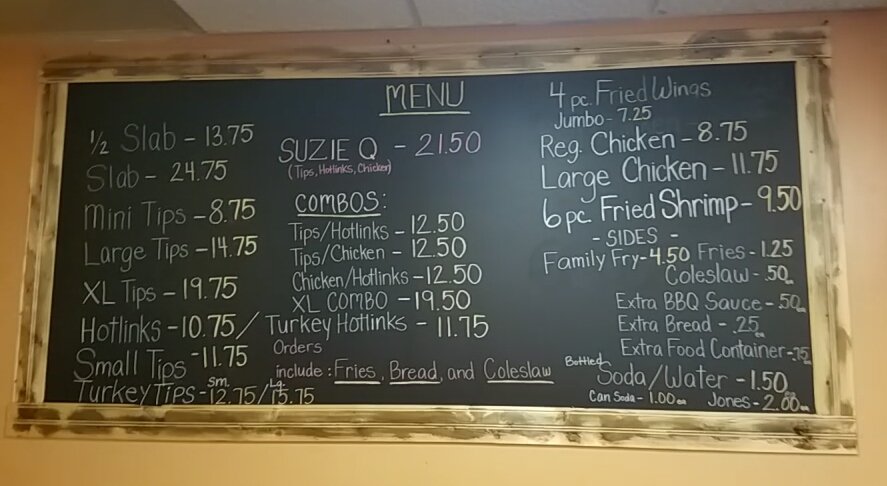 MENU
1/2 Slab - 13.75
Slab - 24.75
Mini Tips - 8.75
Large Tips - 14.75
XL Tips - 19.75
Hotlinks - 10.75 / Turkey Hotlinks - 11.75
Small Tips - 11.75
Turkey Tips - Sm. 12.75 / Lg. 15.75
SUZIE Q - 21.50
(Tips, Hotlinks, Chicken)
COMBOS:
Tips/Hotlinks - 12.50
Tips/Chicken - 12.50
Chicken/Hotlinks - 12.50
XL COMBO - 19.50
Orders
include: Fries, Bread, and Coleslaw
4 pc. Fried Wings
Jumbo - 7.25
Reg. Chicken - 8.75
Large Chicken - 11.75
6 pc. Fried Shrimp - 9.50
- SIDES -
Family Fry - 4.50 Fries - 1.25
Coleslaw - .50
Extra BBQ Sauce - .50
Extra Bread - .25 ea
Extra Food Container - .75
Bottled Soda/Water - 1.50
Can Soda - 1.00 ea Jones - 2.00 ea